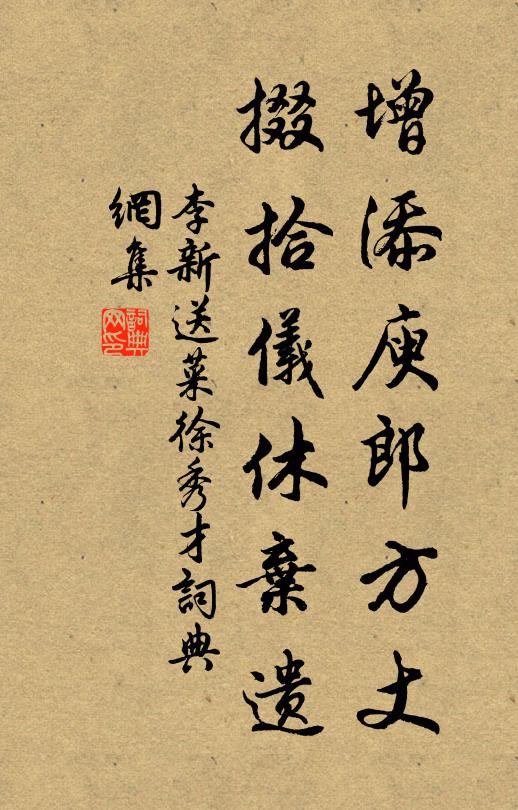 增添庾郎方丈
掇拾儀休棄遗
李新送菜徐秀才詞典
網集
詞典
网印